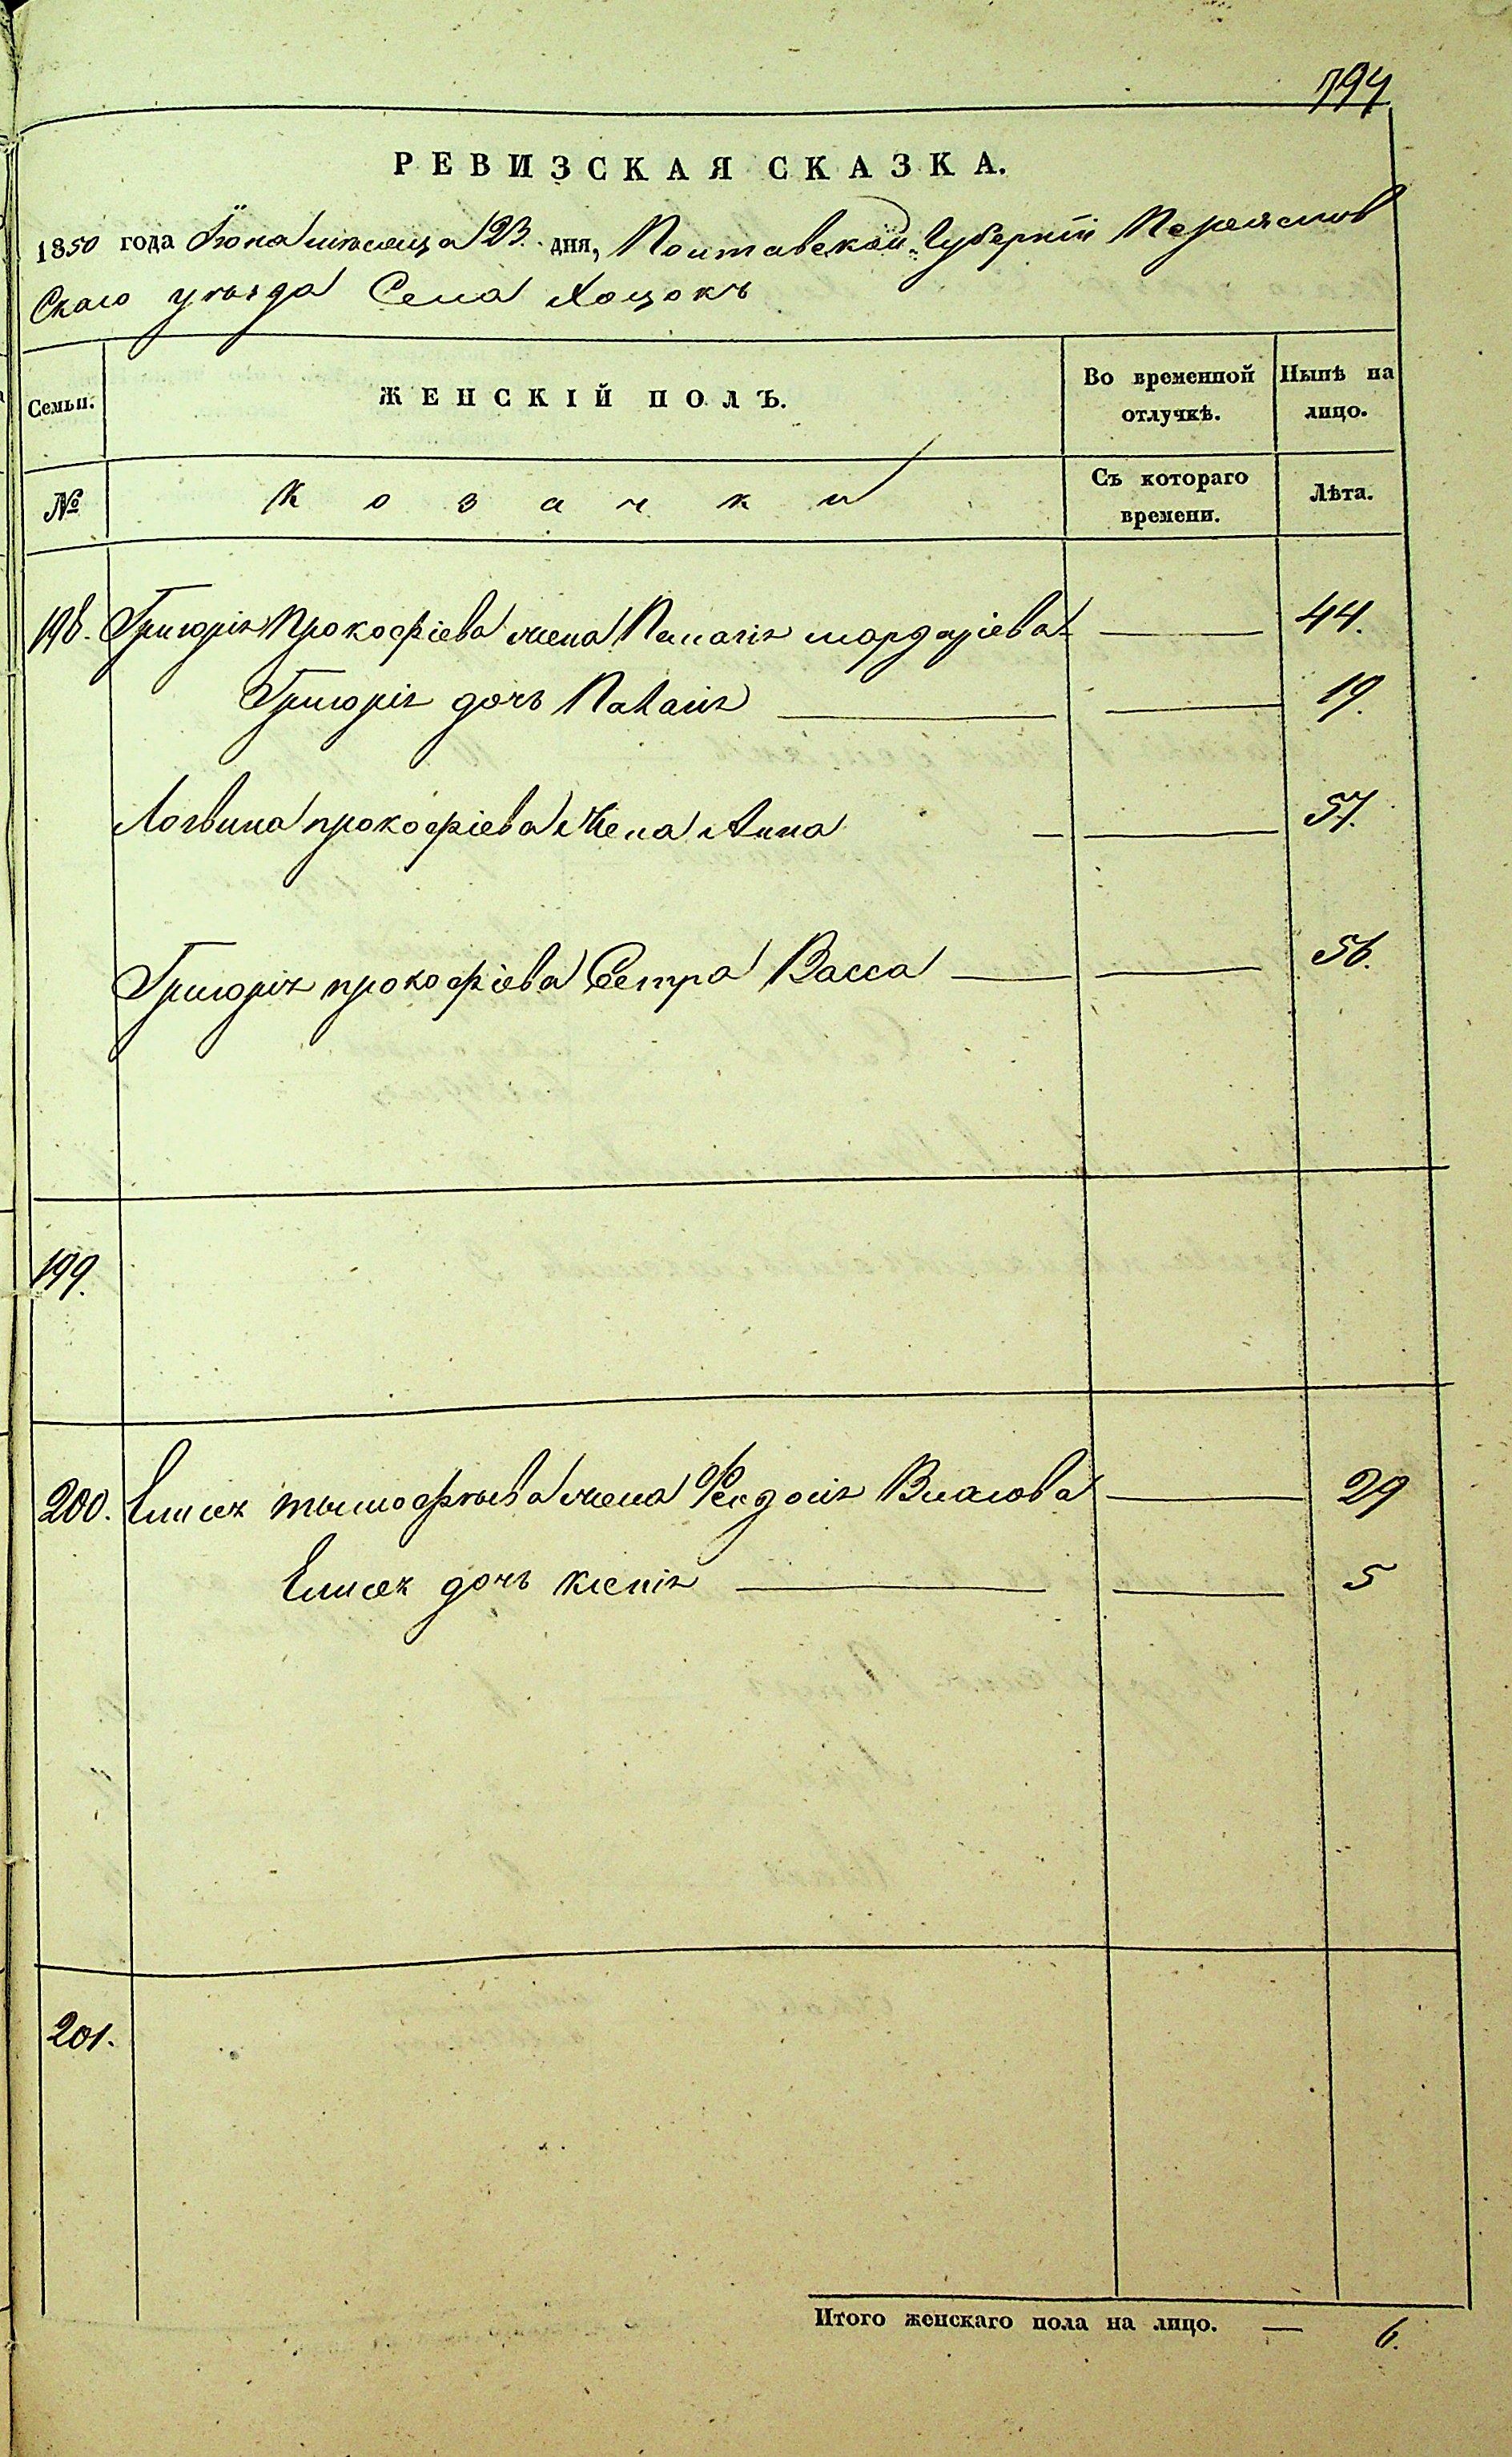 794
РЕВИЗСКАЯ СКАЗКА.
1850 года Іюна мѣсеца 23. дня, Полтавской Губерніи Переяслов
Скаго уѣзда Села Хоцокъ
Семьи. ЖЕНСКІЙ ПОЛЪ. Во временной отлучкѣ. Нынѣ на лицо.
№ Козачки Съ котораго времени. Лѣта.
198. Григорія Прокофіева жена Палагія Мордаріева — 44.
Григорія дочь Палагія — 19.
Логвина прокофіева Жена Анна — 57.
Григорія прокофіева Сестра Васса — 56.
199.
200. Елисея тымофѣева жена Феодосія Власова — 29
Елисея дочь Ксенія — 5
201.
Итого женскаго пола на лицо. — 6.